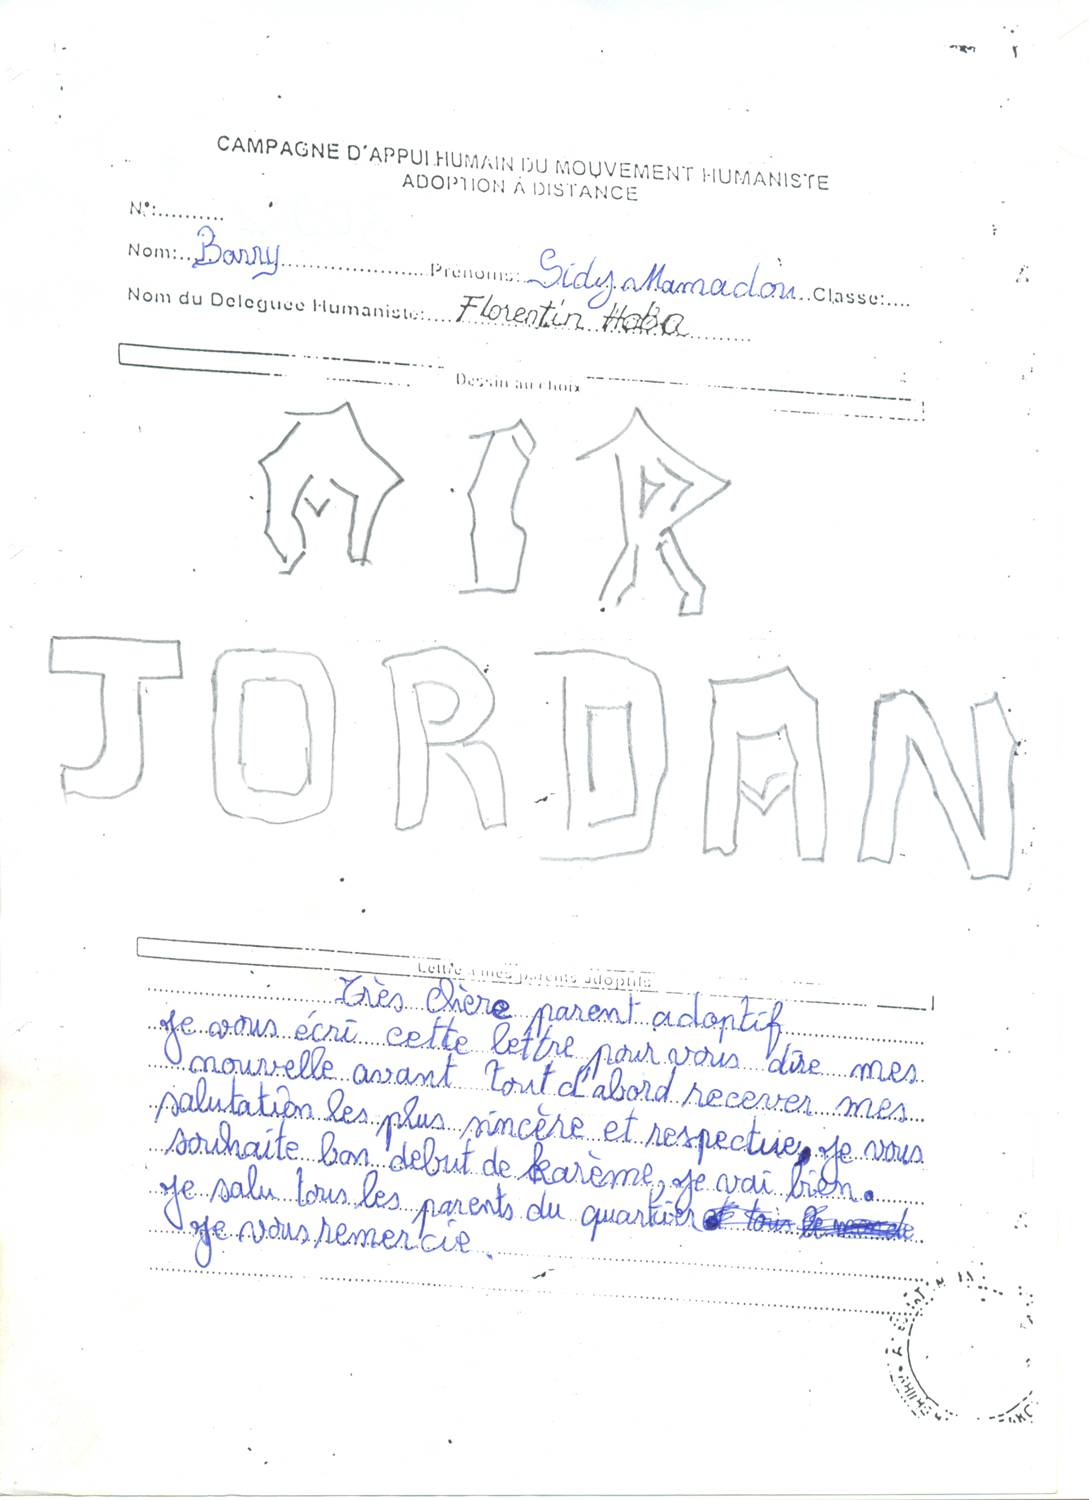 CAMPAGNE D'APPUI HUMAIN DU MOUVEMENT HUMANISTE
ADOPTION A DISTANCE
N°:..........
Nom:..Barry......................Prénoms:..Sidy Mamadou..Classe:....
Nom du Déléguée Humaniste:....Florentin Haba..........
Dessin au choix
AIR
JORDAN
Lettre à mes parents adoptifs
Très chère parent adoptif
je vous écri cette lettre pour vous dire mes
nourvelle avant tout d'abord recever mes
salutation les plus sincère et respectue, je vous
souhaite bon debut de karème, je vai bien.
je salu tous les parents du quartier et tous le monde
je vous remercie.